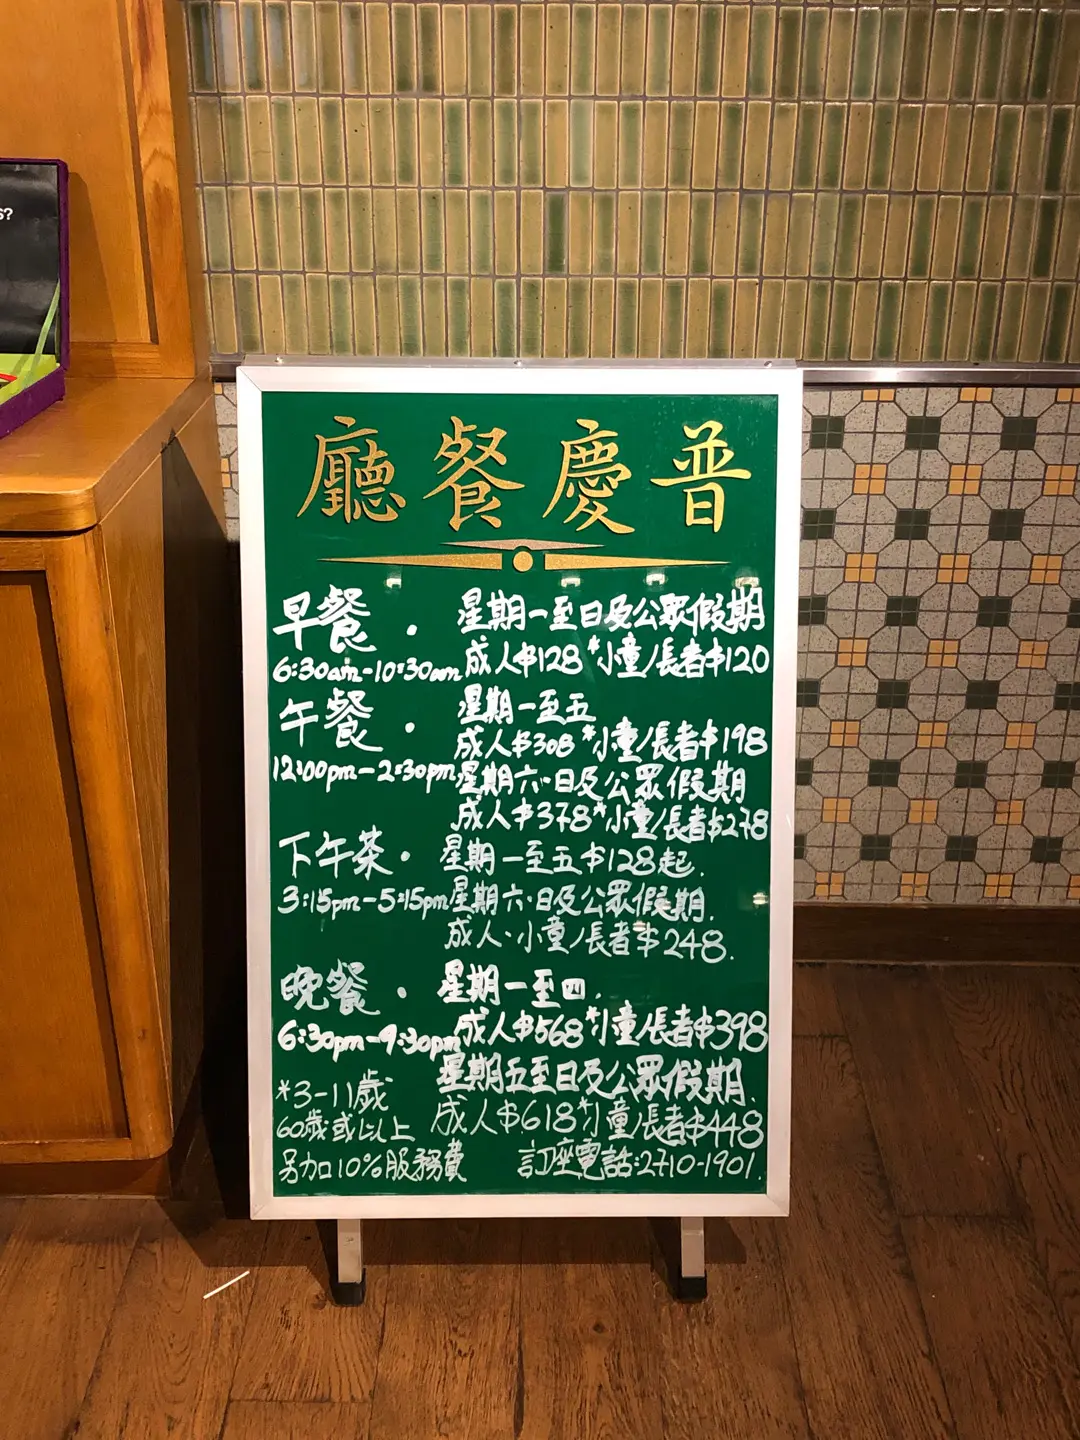 S?
普慶餐廳
早餐．
6:30am-10:30am
星期一至日及公眾假期
成人$128 *小童/長者$120
午餐．
12:00pm-2:30pm
星期一至五
成人$308 *小童/長者$198
星期六.日及公眾假期
成人$378 *小童/長者$278
下午茶．
3:15pm-5:15pm
星期一至五$128起.
星期六.日及公眾假期.
成人.小童/長者$248.
晚餐．
6:30pm-9:30pm
星期一至四.
成人$568 *小童/長者$398
星期五至日及公眾假期.
成人$618 *小童/長者$448
*3-11歲
60歲或以上
另加10%服務費
訂座電話:2710-1901.